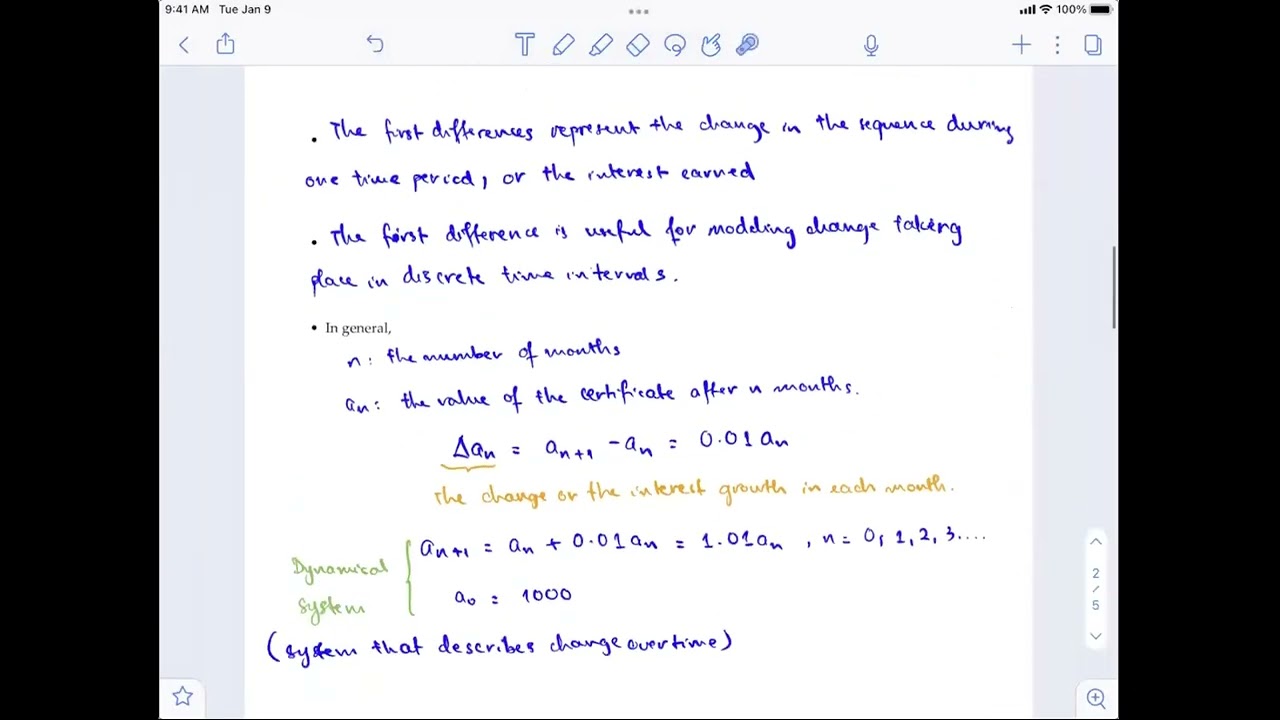 9:41 AM Tue Jan 9
100%
. The first differences represent the change in the sequence during
one time period, or the interest earned
. The first difference is useful for modeling change taking
place in discrete time intervals.
• In general,
n: the number of months
aₙ: the value of the certificate after n months.
Δaₙ = aₙ₊₁ - aₙ = 0.01aₙ
the change or the interest growth in each month.
Dynamical system
aₙ₊₁ = aₙ + 0.01aₙ = 1.01aₙ , n = 0, 1, 2, 3....
a₀ = 1000
(system that describes change over time)
2
/
5